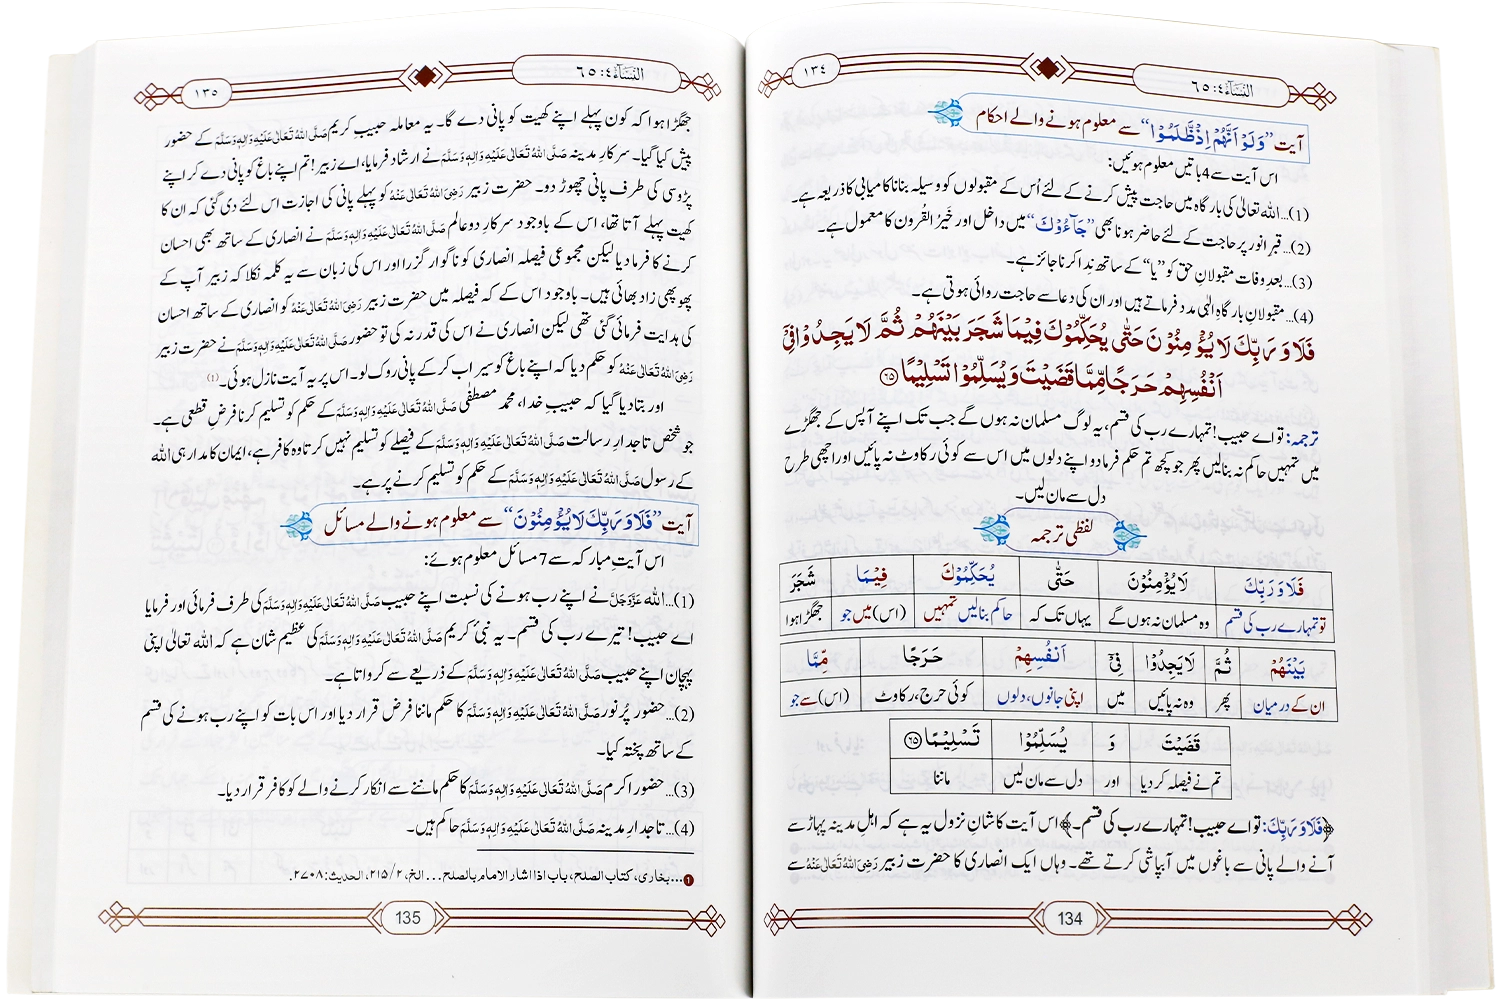 النّسآء٤: ٦٥
١٣٤
آیت ”وَلَوْ اَنَّهُمْ اِذْ ظَّلَمُوْۤا“ سے معلوم ہونے والے احکام
اس آیت سے 4 باتیں معلوم ہوئیں:
(1)...اللہ تعالیٰ کی بارگاہ میں حاجت پیش کرنے کے لئے اُس کے مقبولوں کو وسیلہ بنانا کامیابی کا ذریعہ ہے۔
(2)...قبرِ انور پر حاجت کے لئے حاضر ہونا بھی ”جَآءُوْكَ“ میں داخل اور خَیرُ القُرون کا معمول ہے۔
(3)...بعدِ وفات مقبولانِ حق کو ”یا“ کے ساتھ نِدا کرنا جائز ہے۔
(4)...مقبولانِ بارگاہِ الٰہی مدد فرماتے ہیں اور ان کی دعا سے حاجت روائی ہوتی ہے۔
فَلَا وَ رَبِّكَ لَا یُؤْمِنُوْنَ حَتّٰى یُحَكِّمُوْكَ فِیْمَا شَجَرَ بَیْنَهُمْ ثُمَّ لَا یَجِدُوْا فِیْۤ
اَنْفُسِهِمْ حَرَجًا مِّمَّا قَضَیْتَ وَ یُسَلِّمُوْا تَسْلِیْمًا ﴿٦٥﴾
ترجمہ: تو اے حبیب! تمہارے رب کی قسم، یہ لوگ مسلمان نہ ہوں گے جب تک اپنے آپس کے جھگڑے
میں تمہیں حاکم نہ بنا لیں پھر جو کچھ تم حکم فرما دو اپنے دلوں میں اس سے کوئی رکاوٹ نہ پائیں اور اچھی طرح
دل سے مان لیں۔
لفظی ترجمہ
فَلَا وَ رَبِّكَ لَا یُؤْمِنُوْنَ حَتّٰى یُحَكِّمُوْكَ فِیْمَا شَجَرَ
تو تمہارے رب کی قسم وہ مسلمان نہ ہوں گے یہاں تک کہ حاکم بنا لیں تمہیں (اس) میں جو جھگڑا ہوا
بَیْنَهُمْ ثُمَّ لَا یَجِدُوْا فِیْۤ اَنْفُسِهِمْ حَرَجًا مِّمَّا
ان کے درمیان پھر وہ نہ پائیں میں اپنی جانوں، دلوں کوئی حرج، رکاوٹ (اس) سے جو
قَضَیْتَ وَ یُسَلِّمُوْا تَسْلِیْمًا ﴿٦٥﴾
تم نے فیصلہ کر دیا اور دل سے مان لیں ماننا
﴿فَلَا وَ رَبِّكَ: تو اے حبیب! تمہارے رب کی قسم۔﴾ اس آیت کا شانِ نزول یہ ہے کہ اہلِ مدینہ پہاڑ سے
آنے والے پانی سے باغوں میں آبپاشی کرتے تھے۔ وہاں ایک انصاری کا حضرت زبیر رَضِیَ اللہُ تَعَالٰی عَنْہُ سے
134
النّسآء٤: ٦٥
١٣٥
جھگڑا ہوا کہ کون پہلے اپنے کھیت کو پانی دے گا۔ یہ معاملہ حبیبِ کریم صَلَّی اللہُ تَعَالٰی عَلَیْہِ وَاٰلِہٖ وَسَلَّمَ کے حضور
پیش کیا گیا۔ سرکارِ مدینہ صَلَّی اللہُ تَعَالٰی عَلَیْہِ وَاٰلِہٖ وَسَلَّمَ نے ارشاد فرمایا، اے زبیر! تم اپنے باغ کو پانی دے کر اپنے
پڑوسی کی طرف پانی چھوڑ دو۔ حضرت زبیر رَضِیَ اللہُ تَعَالٰی عَنْہُ کو پہلے پانی کی اجازت اس لئے دی گئی کہ ان کا
کھیت پہلے آتا تھا، اس کے باوجود سرکارِ دو عالَم صَلَّی اللہُ تَعَالٰی عَلَیْہِ وَاٰلِہٖ وَسَلَّمَ نے انصاری کے ساتھ بھی احسان
کرنے کا فرما دیا لیکن مجموعی فیصلہ انصاری کو ناگوار گزرا اور اس کی زبان سے یہ کلمہ نکلا کہ زبیر آپ کے
پھوپھی زاد بھائی ہیں۔ باوجود اس کے کہ فیصلہ میں حضرت زبیر رَضِیَ اللہُ تَعَالٰی عَنْہُ کو انصاری کے ساتھ احسان
کی ہدایت فرمائی گئی تھی لیکن انصاری نے اس کی قدر نہ کی تو حضور صَلَّی اللہُ تَعَالٰی عَلَیْہِ وَاٰلِہٖ وَسَلَّمَ نے حضرت زبیر
رَضِیَ اللہُ تَعَالٰی عَنْہُ کو حکم دیا کہ اپنے باغ کو سیراب کر کے پانی روک لو۔ اس پر یہ آیت نازل ہوئی۔ (1)
اور بتا دیا گیا کہ حبیبِ خدا، محمد مصطفٰی صَلَّی اللہُ تَعَالٰی عَلَیْہِ وَاٰلِہٖ وَسَلَّمَ کے حکم کو تسلیم کرنا فرضِ قطعی ہے۔
جو شخص تاجدارِ رسالت صَلَّی اللہُ تَعَالٰی عَلَیْہِ وَاٰلِہٖ وَسَلَّمَ کے فیصلے کو تسلیم نہیں کرتا وہ کافر ہے، ایمان کا مدار ہی اللہ
کے رسول صَلَّی اللہُ تَعَالٰی عَلَیْہِ وَاٰلِہٖ وَسَلَّمَ کے حکم کو تسلیم کرنے پر ہے۔
آیت ”فَلَا وَ رَبِّكَ لَا یُؤْمِنُوْنَ“ سے معلوم ہونے والے مسائل
اس آیتِ مبارکہ سے 7 مسائل معلوم ہوئے:
(1)...اللہ عَزَّوَجَلَّ نے اپنے رب ہونے کی نسبت اپنے حبیب صَلَّی اللہُ تَعَالٰی عَلَیْہِ وَاٰلِہٖ وَسَلَّمَ کی طرف فرمائی اور فرمایا
اے حبیب! تیرے رب کی قسم۔ یہ نبیِّ کریم صَلَّی اللہُ تَعَالٰی عَلَیْہِ وَاٰلِہٖ وَسَلَّمَ کی عظیم شان ہے کہ اللہ تعالیٰ اپنی
پہچان اپنے حبیب صَلَّی اللہُ تَعَالٰی عَلَیْہِ وَاٰلِہٖ وَسَلَّمَ کے ذریعے سے کرواتا ہے۔
(2)...حضور پُر نور صَلَّی اللہُ تَعَالٰی عَلَیْہِ وَاٰلِہٖ وَسَلَّمَ کا حکم ماننا فرض قرار دیا اور اس بات کو اپنے رب ہونے کی قسم
کے ساتھ پختہ کیا۔
(3)...حضور اکرم صَلَّی اللہُ تَعَالٰی عَلَیْہِ وَاٰلِہٖ وَسَلَّمَ کا حکم ماننے سے انکار کرنے والے کو کافر قرار دیا۔
(4)...تاجدارِ مدینہ صَلَّی اللہُ تَعَالٰی عَلَیْہِ وَاٰلِہٖ وَسَلَّمَ حاکم ہیں۔
1...بخاری، کتاب الصلح، باب اذا اشار الامام بالصلح... الخ، ٢/٢١٥، الحدیث: ٢٧٠٨.
135